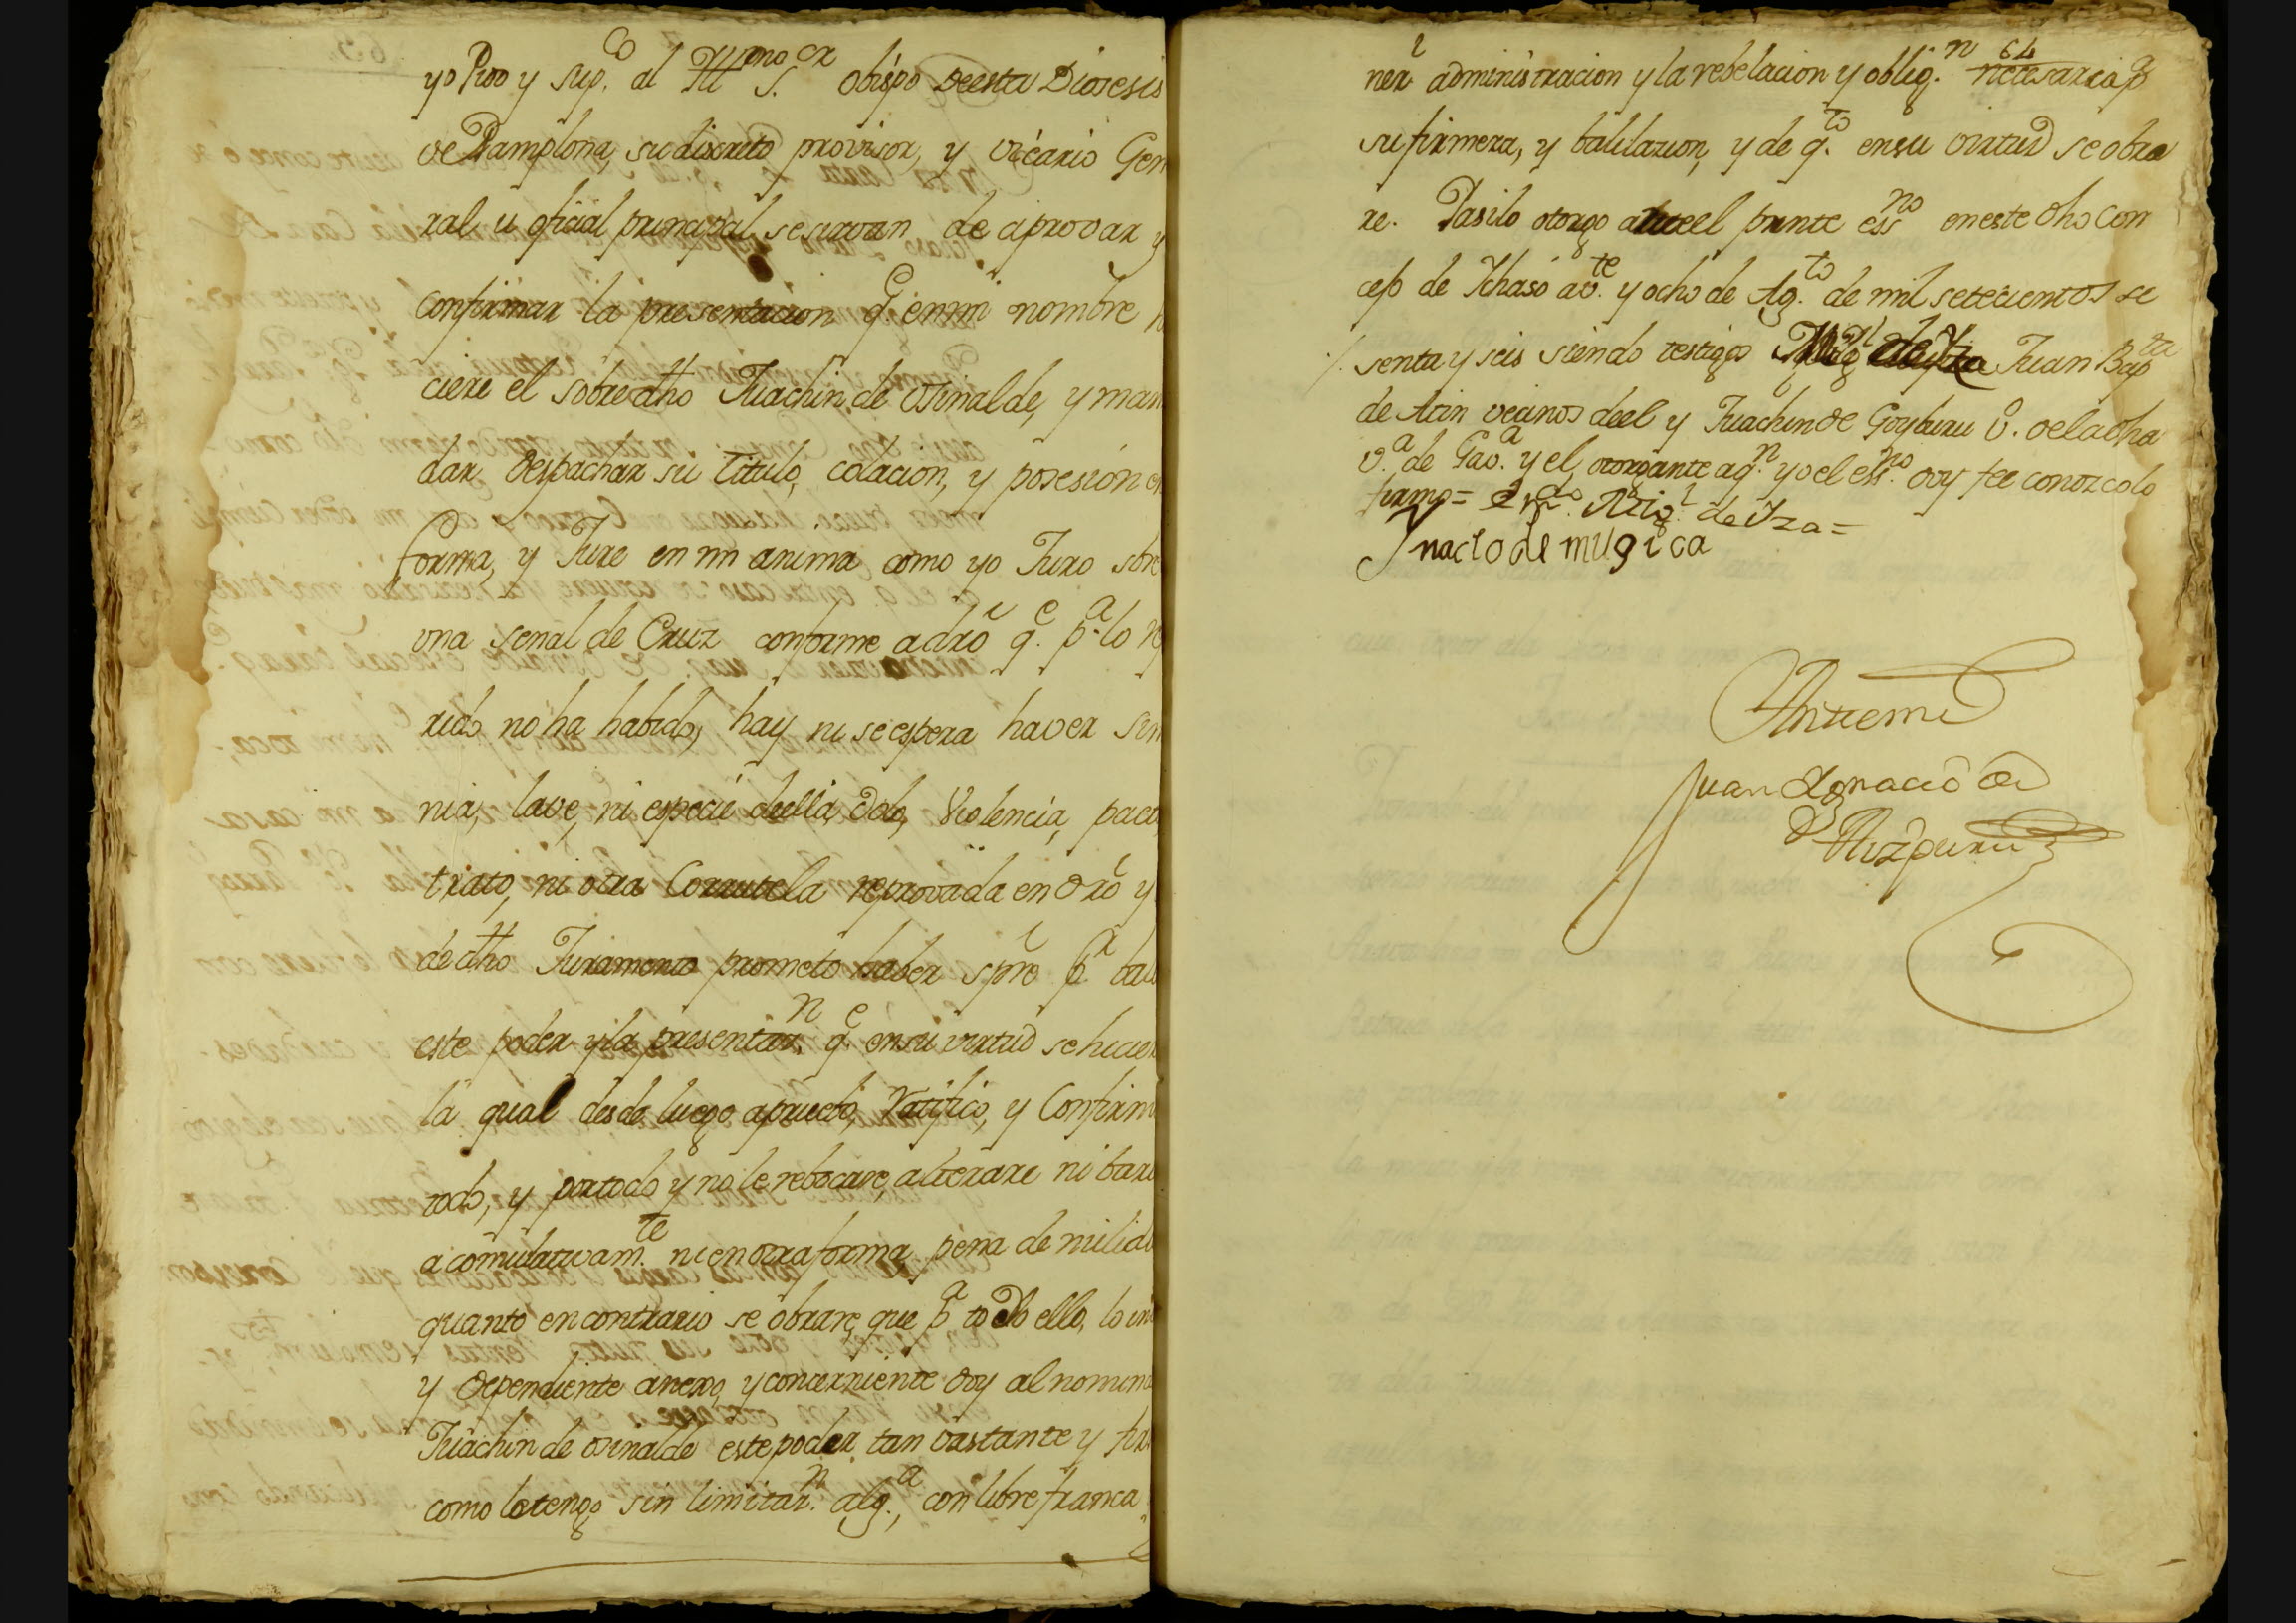 yo Pido y sup.co al Ill.mo S.or Obispo deesta Diosesis
de Pamplona, su discreto provisor, y vicario Gen
ral u oficial principal se sirvan de aprovar y
confirmar la presentacion q.e en mi nombre
ciere el sobre dho Juachin de Osinalde, y man
dar despachar su titulo, colacion, y posesión en
forma, y Jure en mi anima como yo Juro sobre
una senal de Cruz conforme a dro q.e p.a lo
rido no ha habido, hay ni se espera haver sim
nia, lave, ni especie della, dolo, Violencia, pacto
trato, ni otra Corrutela reprovada en dro y
de dho Juramento prometo haber spre p.r
este poder y la presentaz.n q.e en su virtud se hicier
la qual desde luego apruebo, Ratifico, y Confirm
todo, y por todo y no le rebocare, alterare ni bari
acomulativam.te ni en otra forma, pena de nulid
quanto en contrario se obrare, que p.a todo ello, lo in
y dependiente anexo, y concerniente doy al nomina
Juachin de Osinalde este poder tan vastante y
como lo tengo sin limitaz.n alg.a, con libre franca
64
ner.l administracion y la rebelacion y oblig.n necesaria p.a
su firmeza, y balidazion, y de q.to en su virtud se obra
re. Y asi lo otorgo ante el presnte ess.no en este dho Con
cejo de Ichaso a v.te y ocho de Ag.to de mil setecientos se
senta y seis siendo testigos Juan Bap.ta
de Arin vecinos deel y Juachin de Goyburu v.o de la dha
v.a de Gav.a y el otorgante a q.n yo el ess.no doy fee conozco lo
firmo = de Yza =
Ynacio de mugica
Ante mi
Juan Ygnacio de
Aizpuru